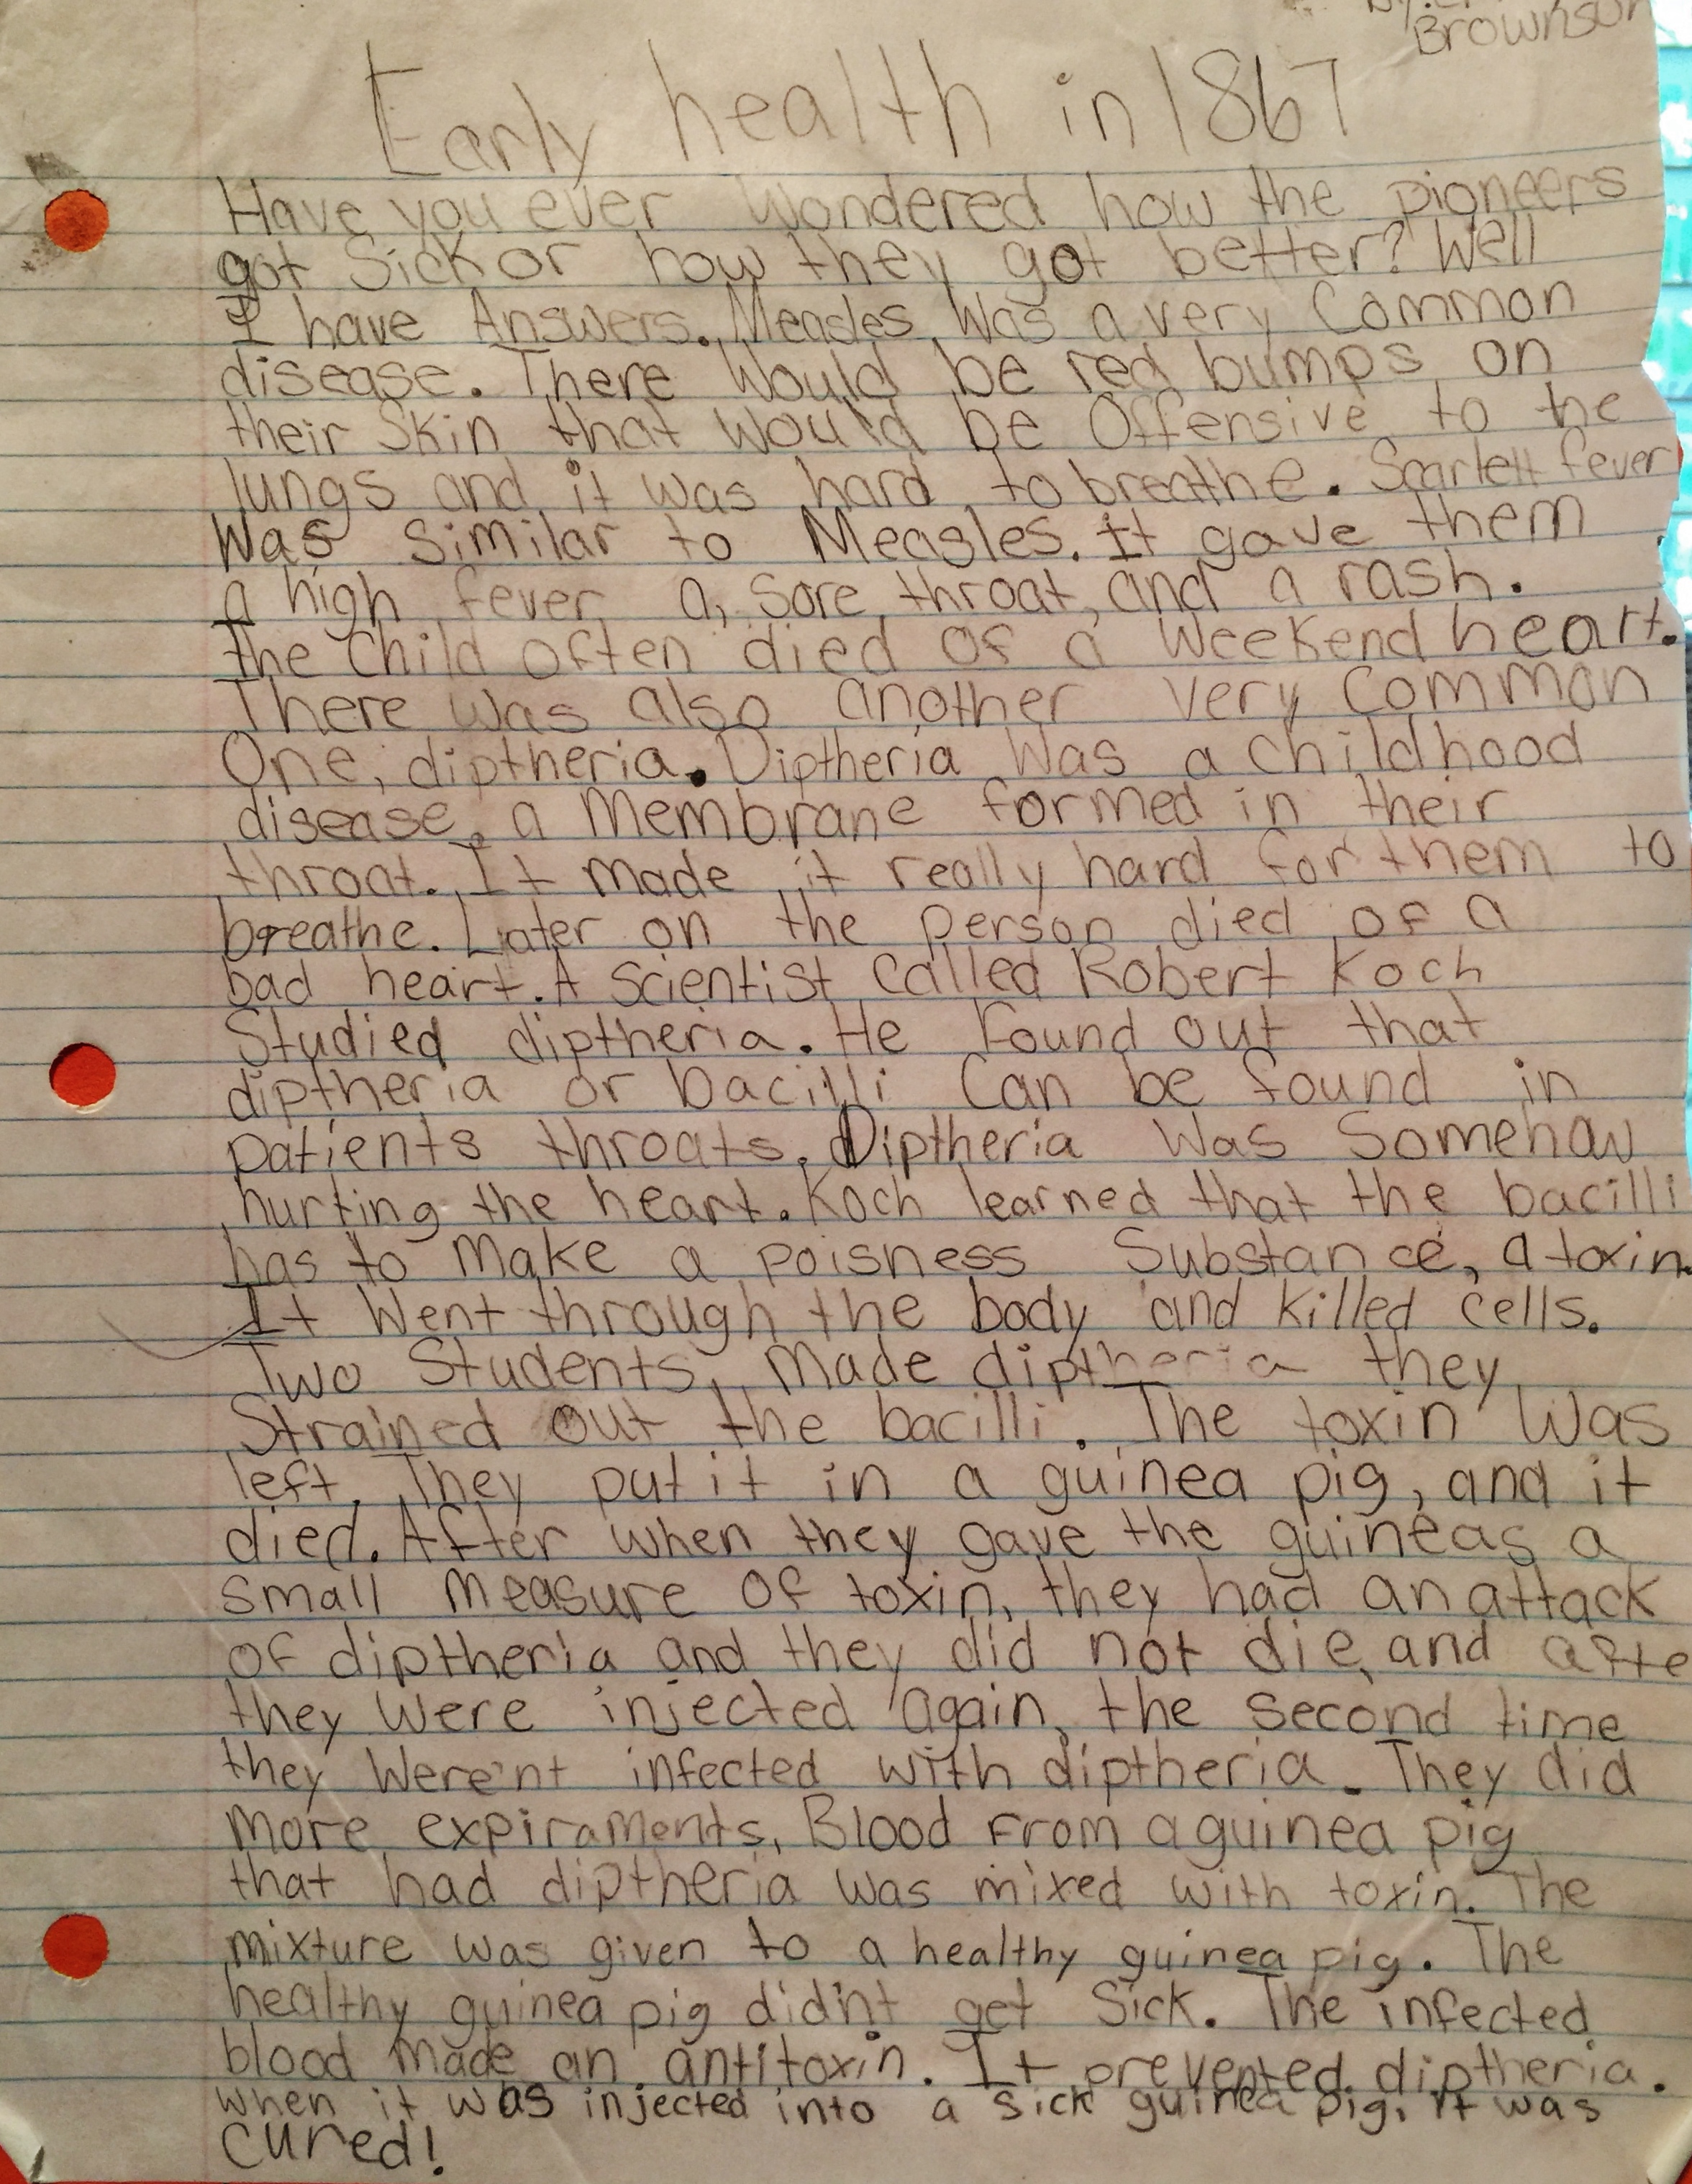 Brownson
Early health in 1867
Have you ever wondered how the pioneers
got Sick or how they got better? Well
I have Answers. Measles Was a very Common
disease. There Would be red bumps on
their Skin that Would be Offensive to the
lungs and it was hard to breathe. Scarlett fever
Was similar to Measles. It gave them
a high fever a, sore throat, and a rash.
the child often died of a weekend heart.
There was also another very common
One, diptheria. Diptheria Was a childhood
disease, a Membrane formed in their
throat. It made it really hard for them to
breathe. Later on the person died of a
bad heart. A scientist called Robert Koch
Studied diptheria. He found out that
diptheria or bacilli Can be found in
patients throats. Diptheria Was Somehow
hurting the heart. Koch learned that the bacilli
has to Make a poisness Substance, a toxin.
It Went through the body and killed cells.
Two Students, Made diptheria they
Strained out the bacilli. The toxin Was
left. They put it in a guinea pig, and it
died. After when they gave the guineas a
small measure of toxin, they had an attack
of diptheria and they did not die, and afte
they Were injected again, the second time
they Were'nt infected with diptheria. They did
More expiraments, Blood From a guinea pig
that had diptheria was mixed with toxin. The
mixture was given to a healthy guinea pig. The
healthy guinea pig did'nt get Sick. The infected
blood made an antitoxin. It prevented diptheria.
when it was injected into a sick guinea pig, it was
cured!